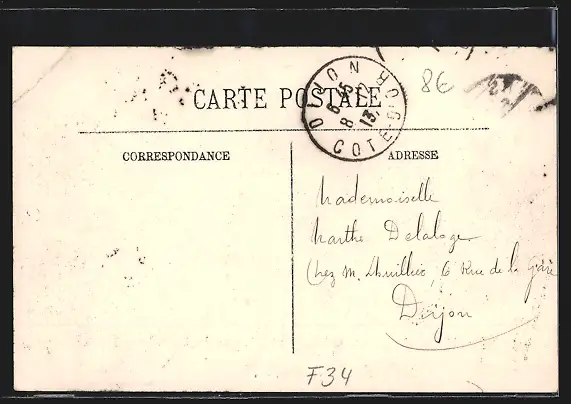 CARTE POSTALE
DIJON
COTE-D'OR
8€
CORRESPONDANCE
ADRESSE
Mademoiselle
Marthe Delaloge
Chez M. Lhuillier, 6 Rue de la Gare
Dijon
F34